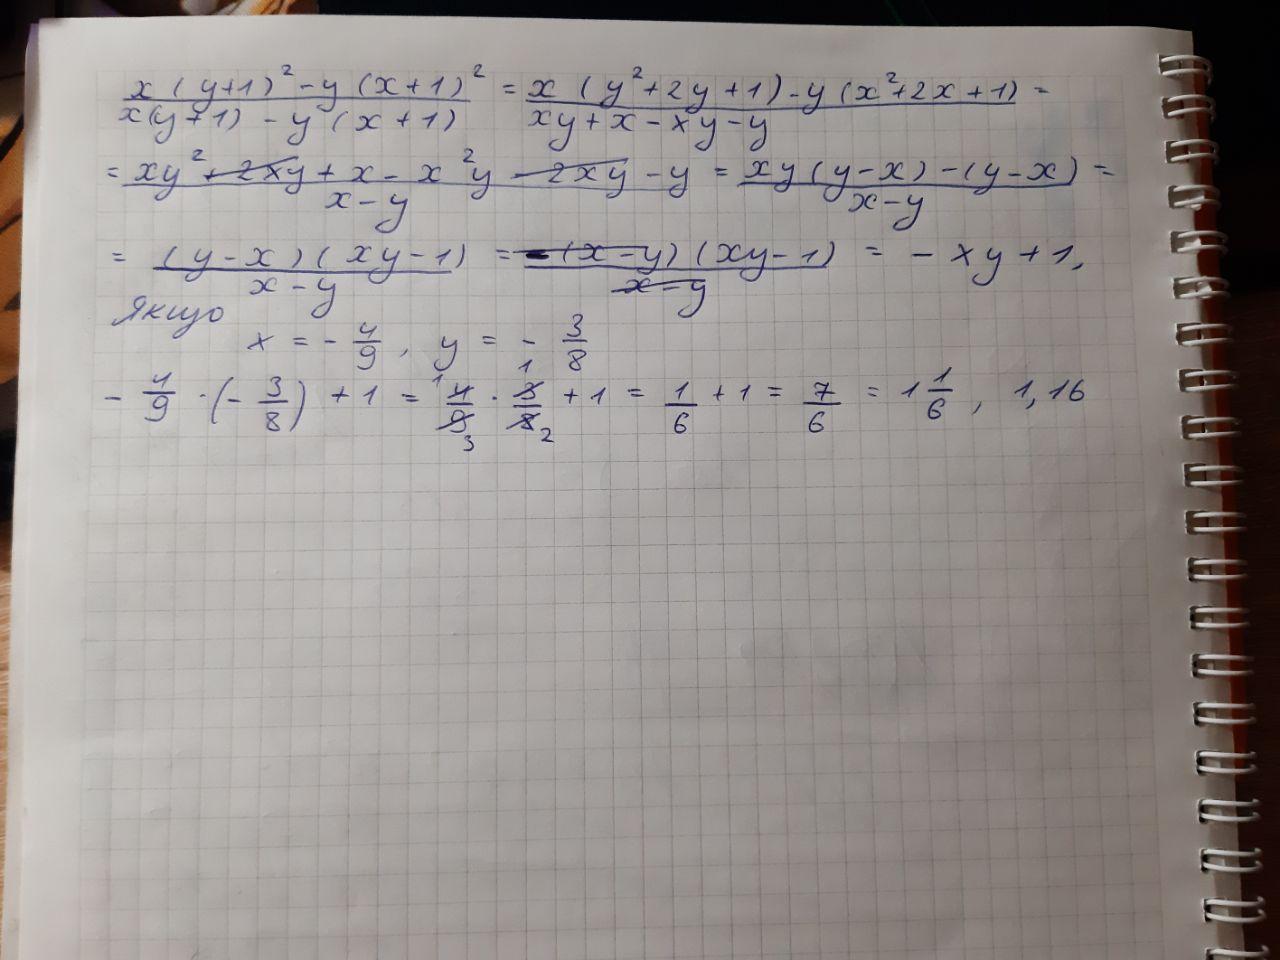 x(y+1)²-y(x+1)² / x(y+1)-y(x+1) = x(y²+2y+1)-y(x²+2x+1) / xy+x-xy-y =
= xy²+2xy+x-x²y-2xy-y / x-y = xy(y-x)-(y-x) / x-y =
= (y-x)(xy-1) / x-y = -(x-y)(xy-1) / x-y = -xy+1,
Якщо
x = -4/9, y = -3/8
-4/9·(-3/8)+1 = 4/9·3/8+1 = 1/6+1 = 7/6 = 1 1/6, 1,16